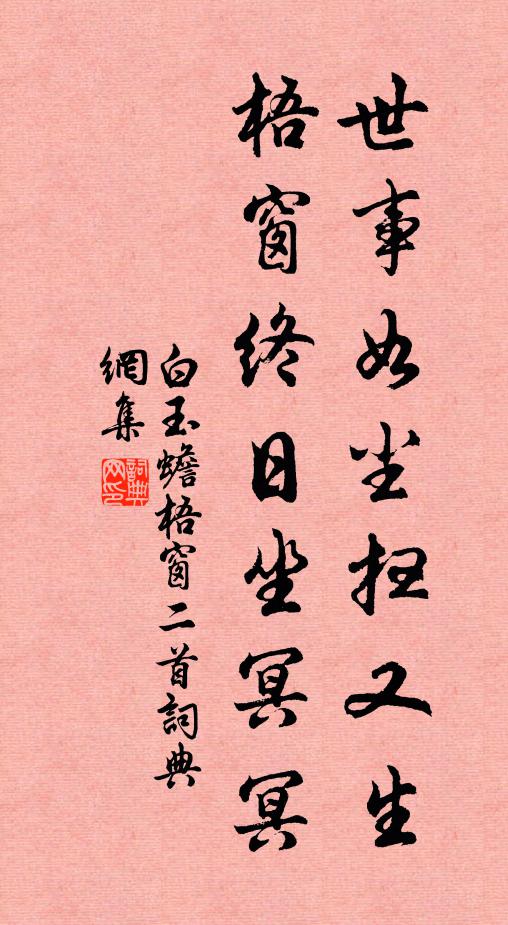 世事如尘扫又生
梧窗终日坐冥冥
白玉蟾梧窗二首詞典
網集
詞典網印